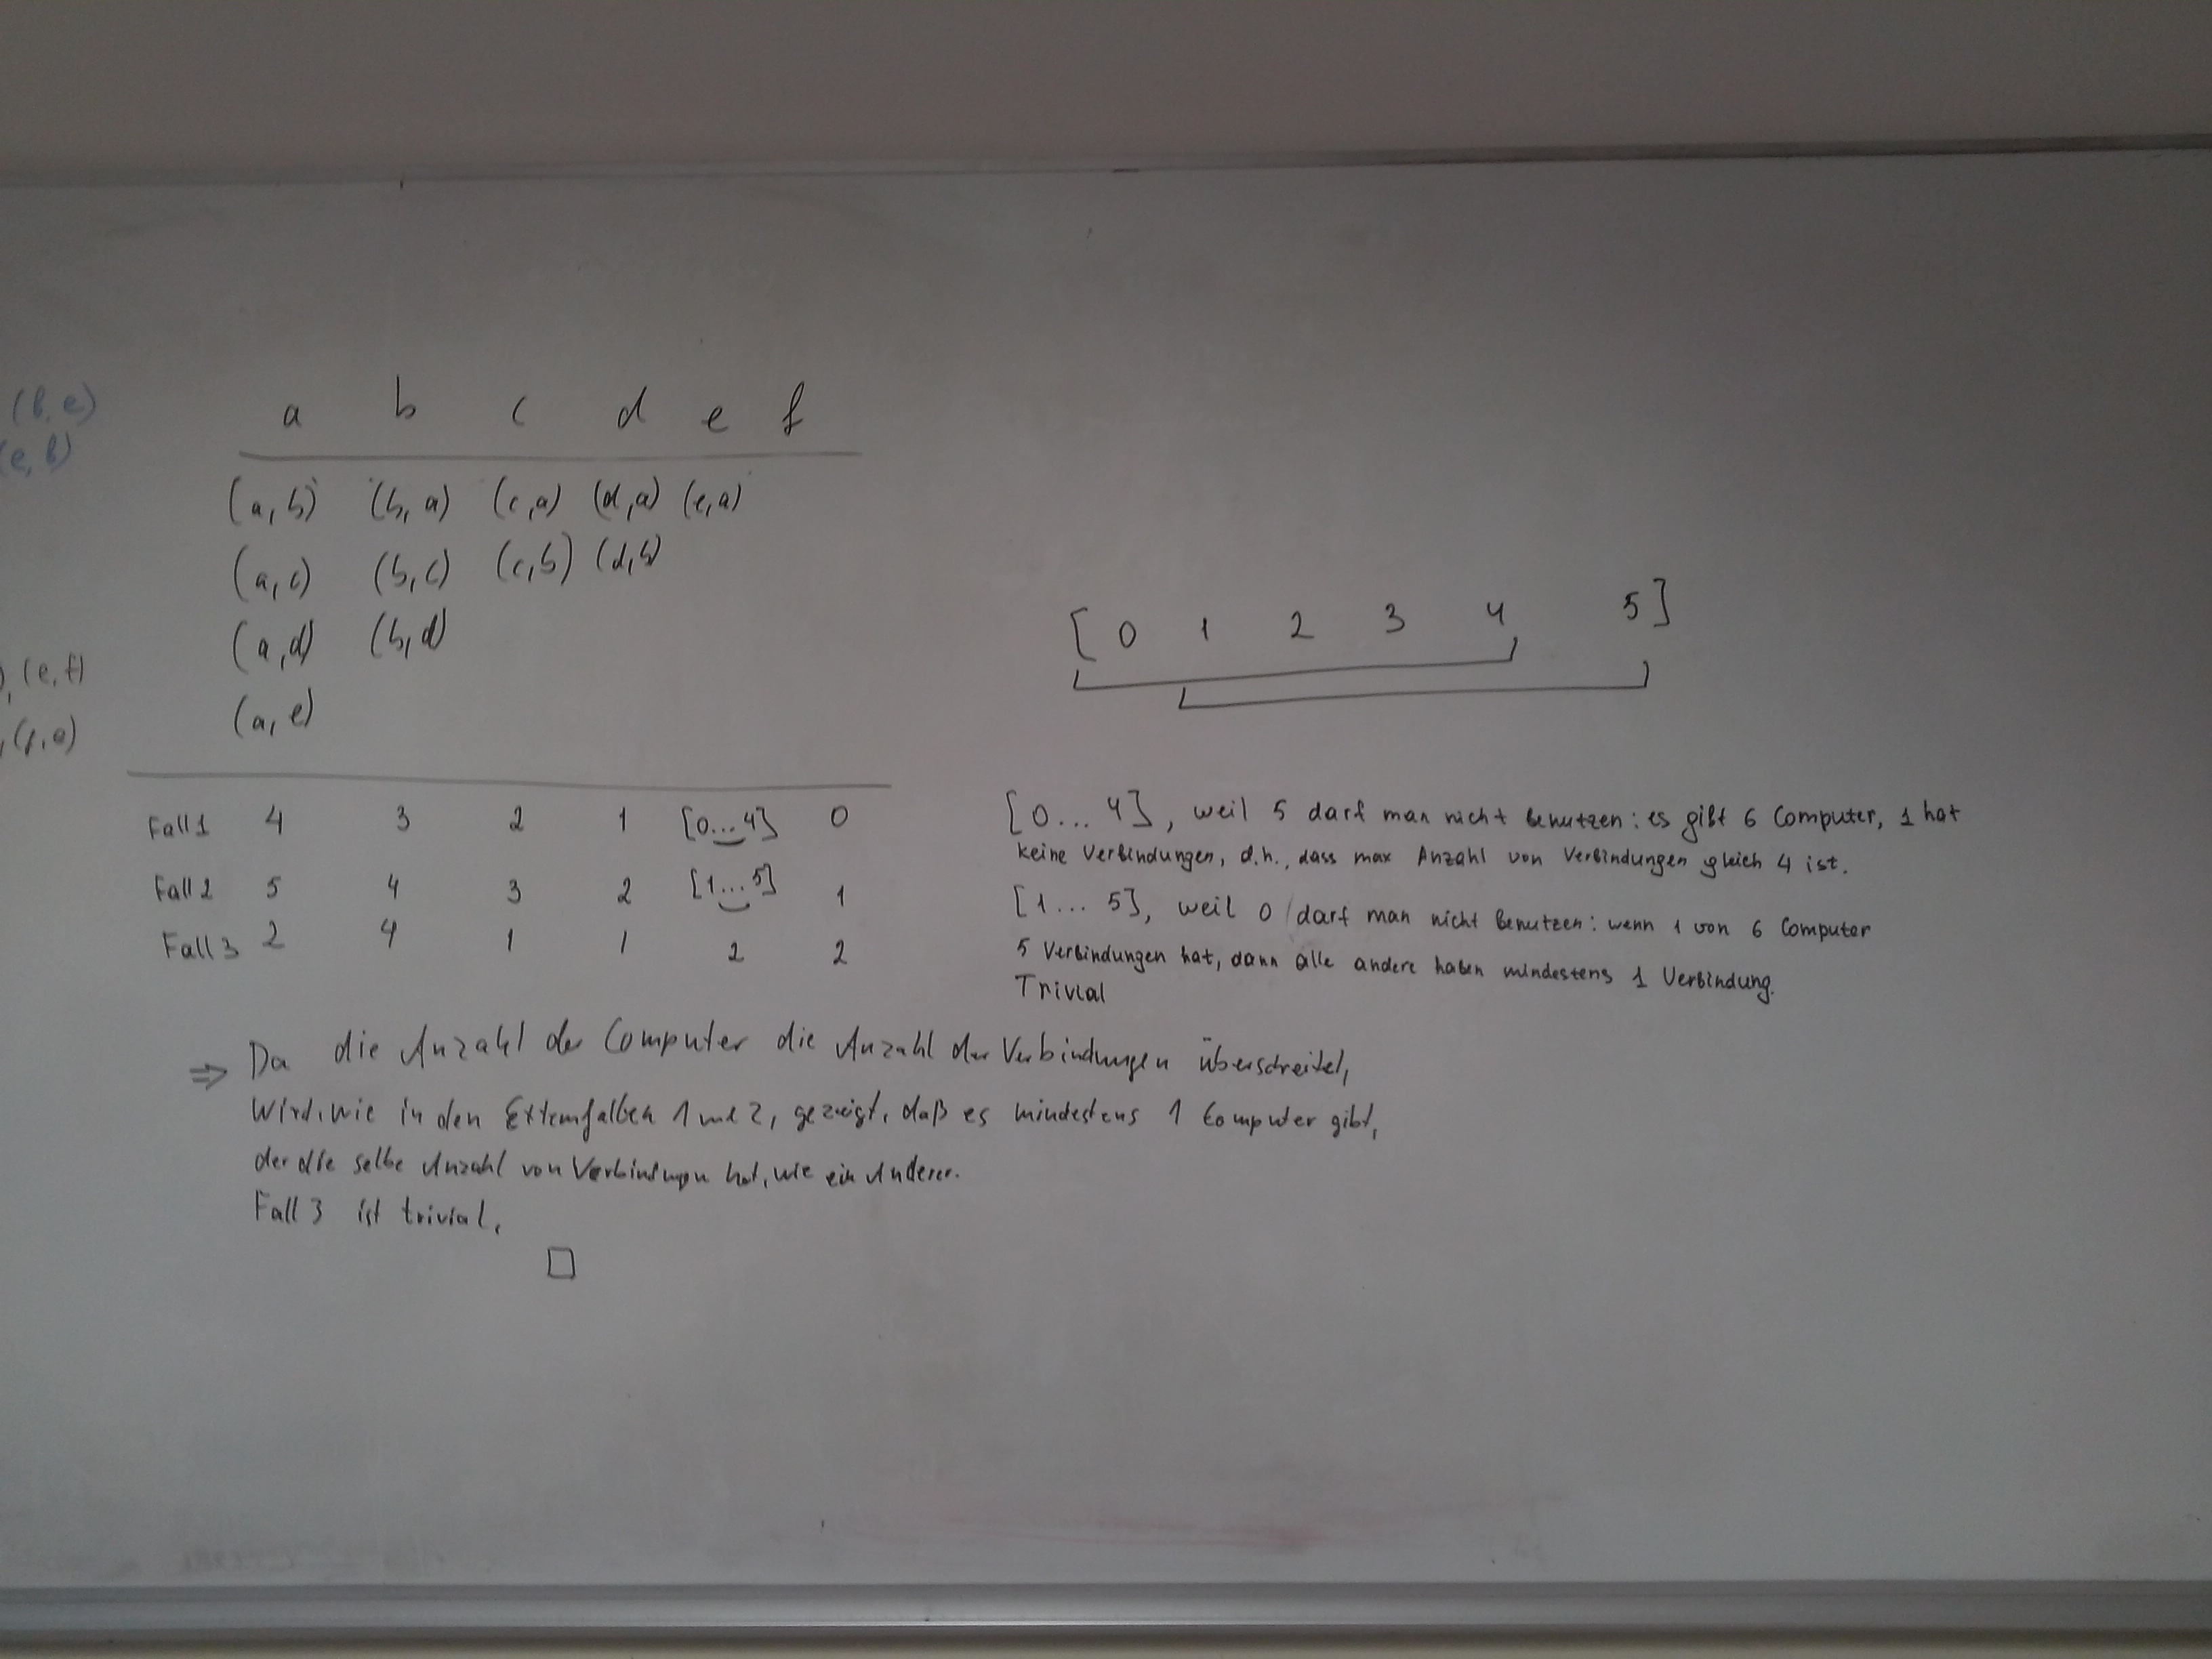 (b, e)
(e, b)
, (e, f)
, (f, e)
a b c d e f
(a, b) (b, a) (c, a) (d, a) (e, a)
(a, c) (b, c) (c, b) (d, b)
(a, d) (b, d)
(a, e)
Fall 1 4 3 2 1 [0...4] 0
Fall 2 5 4 3 2 [1...5] 1
Fall 3 2 4 1 1 2 2
[ 0 1 2 3 4 5 ]
[0... 4], weil 5 darf man nicht benutzen: es gibt 6 Computer, 1 hat
keine Verbindungen, d.h., dass max Anzahl von Verbindungen gleich 4 ist.
[1... 5], weil 0 darf man nicht benutzen: wenn 1 von 6 Computer
5 Verbindungen hat, dann alle andere haben mindestens 1 Verbindung.
Trivial
⇒ Da die Anzahl der Computer die Anzahl der Verbindungen überschreitet,
wird, wie in den 1 und 2, gezeigt, daß es mindestens 1 Computer gibt,
der die selbe Anzahl von Verbindungen hat, wie ein Anderer.
Fall 3 ist trivial.
□